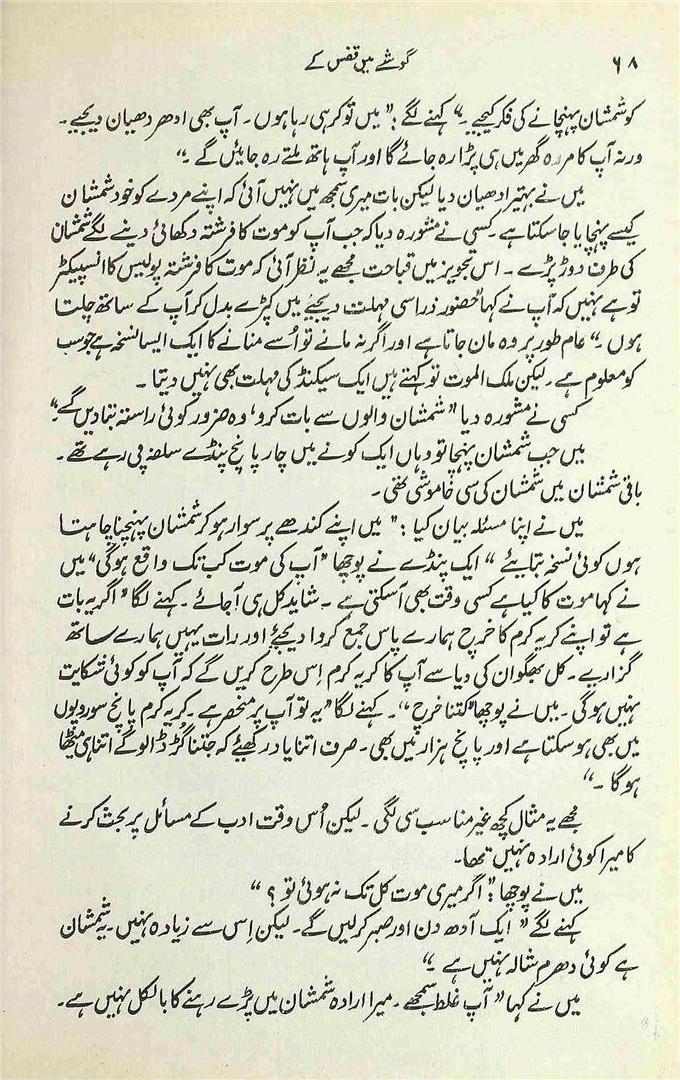 ۶۸
گوشے میں قفس کے
کو شمشان پہنچانے کی فکر کیجیے ۔“ کہنے لگے : ” میں تو کر ہی رہا ہوں ۔ آپ بھی ادھر دھیان دیجیے ۔
ورنہ آپ کا مردہ گھر میں ہی پڑا رہ جائے گا اور آپ ہاتھ ملتے رہ جائیں گے ۔“
میں نے بہتیرا دھیان دیا لیکن بات میری سمجھ میں نہیں آئی کہ اپنے مردے کو خود شمشان
کیسے پہنچایا جا سکتا ہے ۔ کسی نے مشورہ دیا کہ جب آپ کو موت کا فرشتہ دکھائی دینے لگے شمشان
کی طرف دوڑ پڑے ۔ اس تجویز میں قباحت مجھے یہ نظر آئی کہ موت کا فرشتہ پولیس کا انسپیکٹر
تو ہے نہیں کہ آپ نے کہا ”حضور ذرا سی مہلت دیجئے میں کپڑے بدل کر آپ کے ساتھ چلتا
ہوں ۔“ عام طور پر وہ مان جاتا ہے اور اگر نہ مانے تو اُسے منانے کا ایک ایسا نسخہ ہے جو سب
کو معلوم ہے ۔ لیکن ملک الموت تو کہتے ہیں ایک سیکنڈ کی مہلت بھی نہیں دیتا ۔
کسی نے مشورہ دیا ” شمشان والوں سے بات کرو ، وہ ضرور کوئی راستہ بتا دیں گے ۔“
میں جب شمشان پہنچا تو وہاں ایک کونے میں چار پانچ پنڈے سلفہ پی رہے تھے ۔
باقی شمشان میں شمشان کی سی خاموشی تھی ۔
میں نے اپنا مسئلہ بیان کیا : ” میں اپنے کندھے پر سوار ہو کر شمشان پہنچنا چاہتا
ہوں کوئی نسخہ بتایئے “ ایک پنڈے نے پوچھا ” آپ کی موت کب تک واقع ہوگی “ میں
نے کہا موت کا کیا ہے کسی وقت بھی آ سکتی ہے ۔ شاید کل ہی آ جائے ۔ کہنے لگا ” اگر یہ بات
ہے تو اپنے کریہ کرم کا خرچ ہمارے پاس جمع کروا دیجئے اور رات یہیں ہمارے ساتھ
گزارے ۔ کل بھگوان کی دیا سے آپ کا کریہ کرم اِس طرح کریں گے کہ آپ کو کوئی شکایت
نہیں ہوگی ۔ میں نے پوچھا ” کتنا خرچ “ ۔ کہنے لگا ” یہ تو آپ پر منحصر ہے ۔ کریہ کرم پانچ سو روپوں
میں بھی ہو سکتا ہے اور پانچ ہزار میں بھی ۔ صرف اتنا یاد رکھیئے کہ جتنا گُڑ ڈالو گے اتنا ہی میٹھا
ہوگا ۔“
مجھے یہ مثال کچھ غیر مناسب سی لگی ۔ لیکن اُس وقت ادب کے مسائل پر بحث کرنے
کا میرا کوئی ارادہ نہیں تھا ۔
میں نے پوچھا : ” اگر میری موت کل تک نہ ہوئی تو ؟ “
کہنے لگے ” ایک آدھ دن اور صبر کر لیں گے ۔ لیکن اِس سے زیادہ نہیں ۔ یہ شمشان
ہے کوئی دھرم شالہ نہیں ہے ۔“
میں نے کہا ” آپ غلط سمجھے ۔ میرا ارادہ شمشان میں پڑے رہنے کا بالکل نہیں ہے ۔